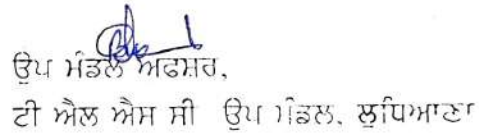 ਉਪ ਮੰਡਲ ਅਫਸਰ,
ਟੀ ਐਲ ਐਸ ਸੀ ਉਪ ਮੰਡਲ, ਲੁਧਿਆਣਾ